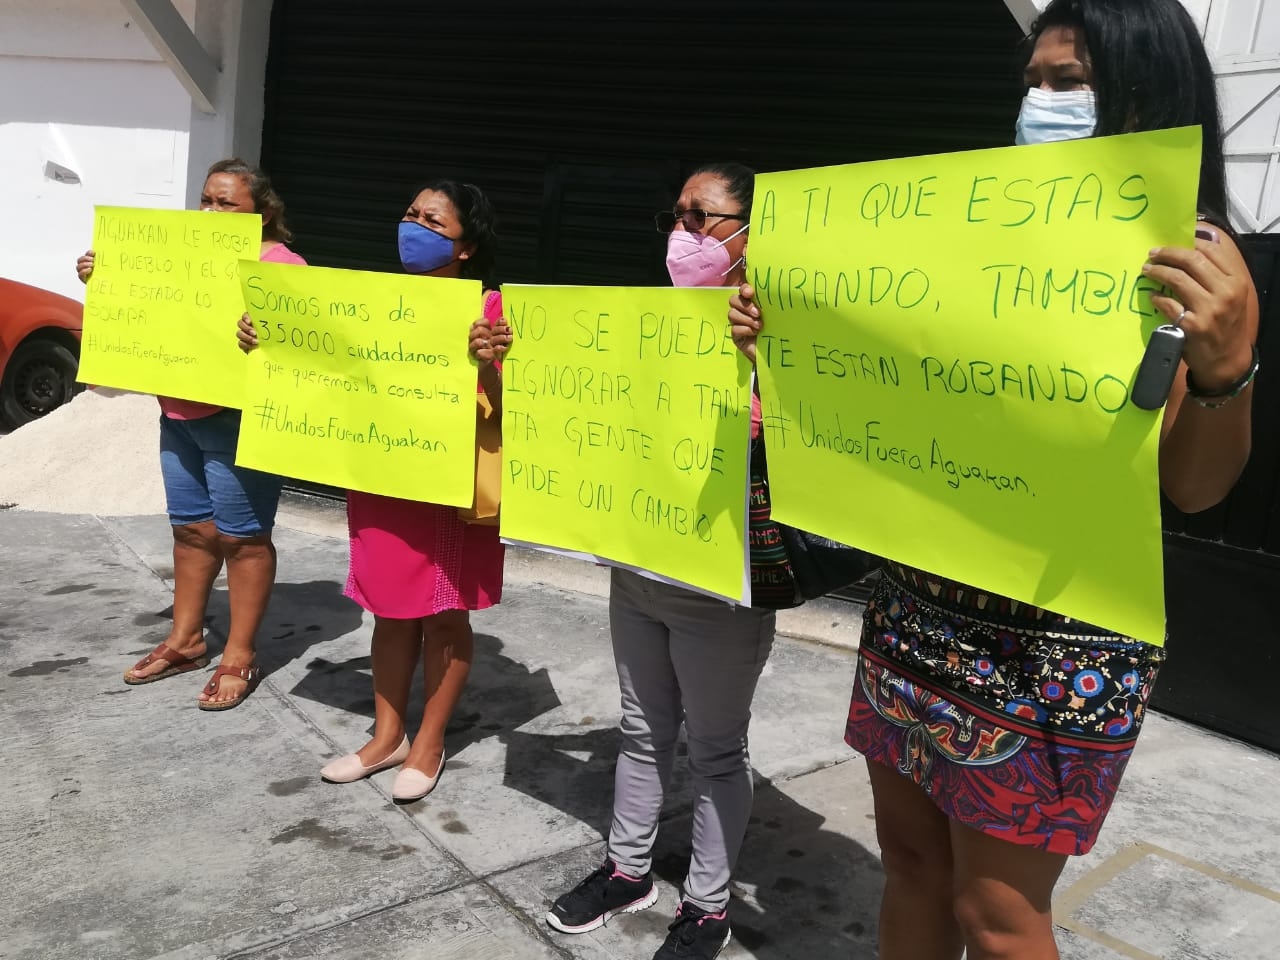 AGUAKAN LE ROBA
AL PUEBLO Y EL GO
DEL ESTADO LO
SOLAPA
#UnidosFueraAguakan.
Somos mas de
35000 ciudadanos
que queremos la consulta
#UnidosFueraAguakan
NO SE PUEDE
IGNORAR A TAN-
TA GENTE QUE
PIDE UN CAMBIO.
A TI QUE ESTAS
MIRANDO, TAMBIE
TE ESTAN ROBANDO
#UnidosFueraAguakan.